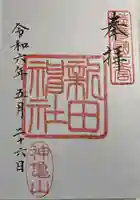 奉拝
新田
神社
神亀山
令和六年五月二十六日